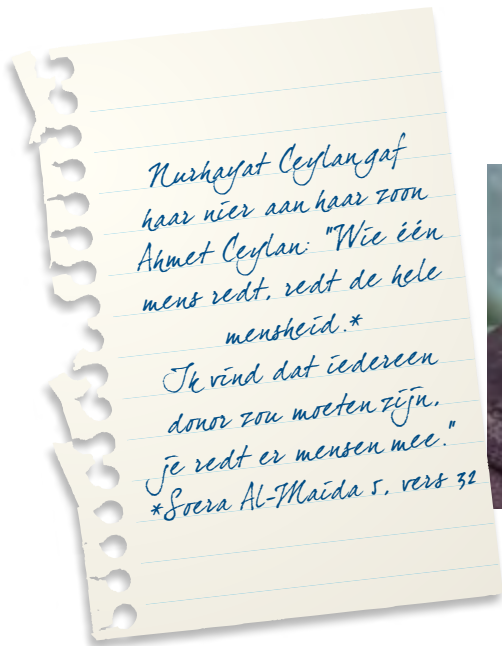 Nurhayat Ceylan gaf
haar nier aan haar zoon
Ahmet Ceylan: "Wie één
mens redt, redt de hele
mensheid.*
Ik vind dat iedereen
donor zou moeten zijn,
je redt er mensen mee."
*Soera Al-Maida 5, vers 32